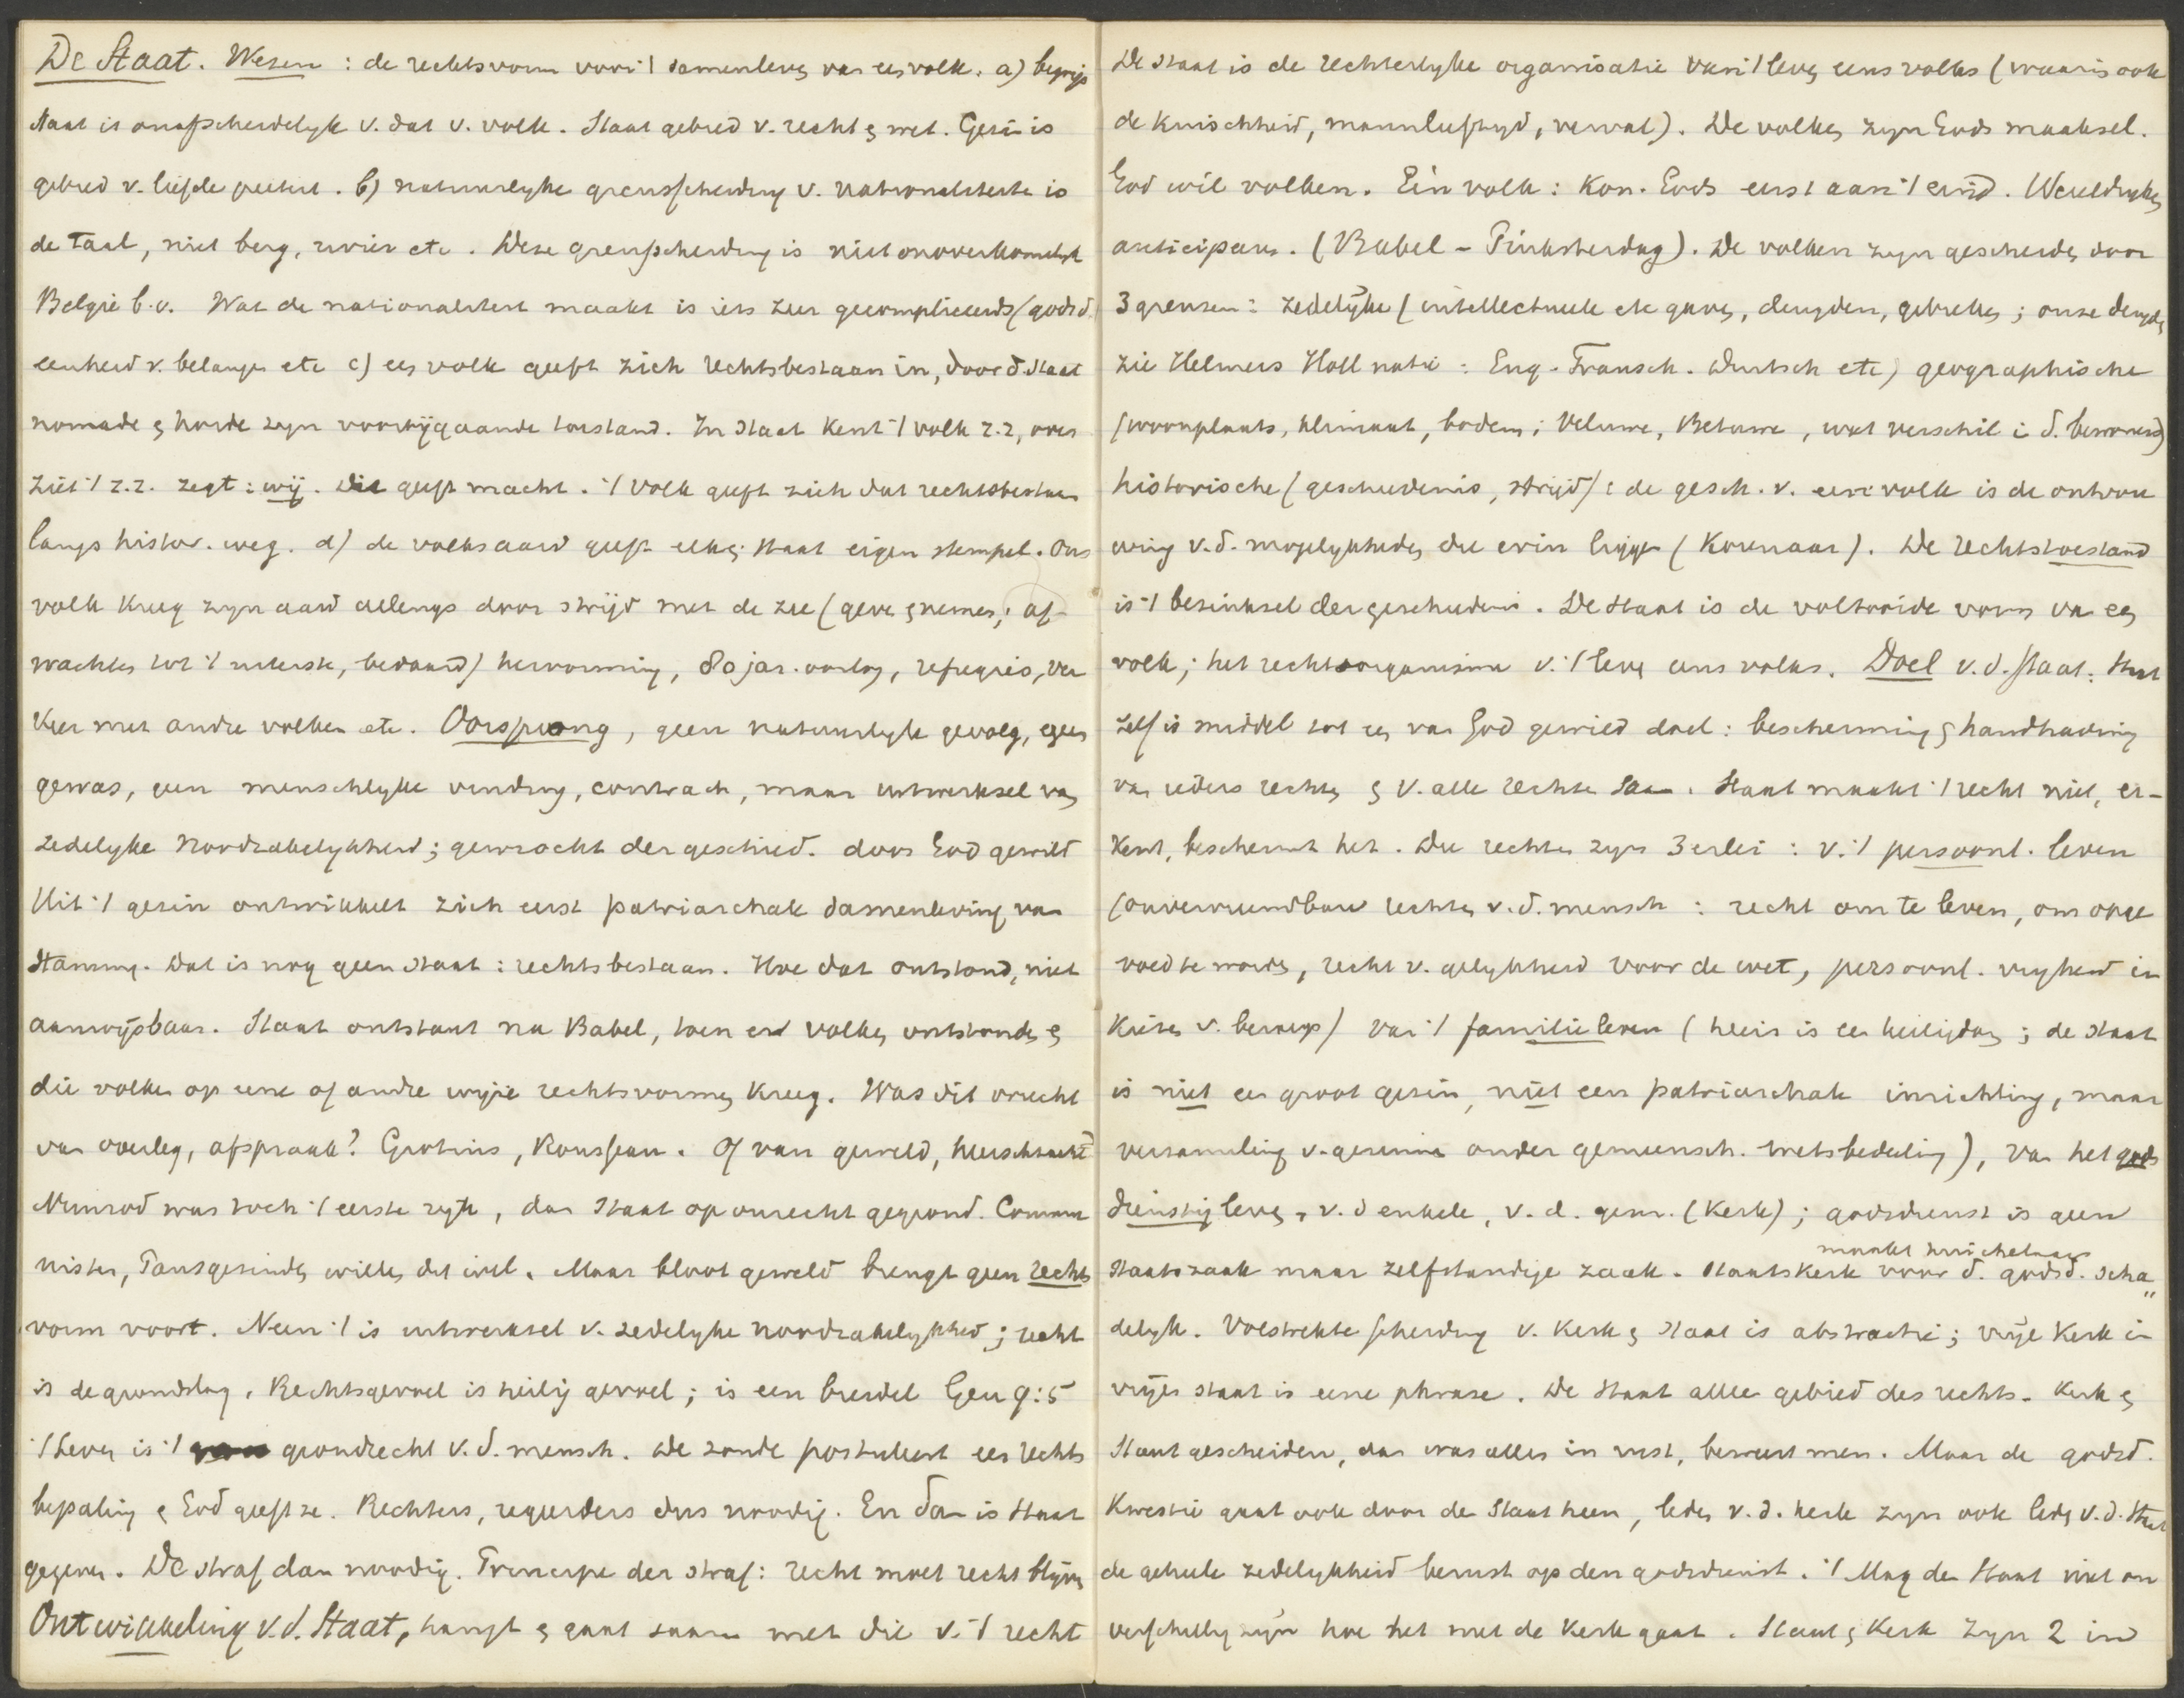 De Staat. Wezen : de rechtsvorm voor 't samenleven van een volk. a) begrip
staat is onafscheidelyk v. dat v. volk. Staat gebied v. recht & wet. Gezin is
gebied v. liefde pieteit. b) natuurlyke grensscheiding v. nationaliteiten is
de Taal, niet berg, rivier etc. Deze grensscheiding is niet onoverkomelyk
België b.v. Wat de nationaliteit maakt is iets zeer gecompliceerds (godsd.
eenheid v. belangen etc c) een volk geeft zich rechtsbestaan in, door d staat
nomade & horde zyn voorbijgaande toestand. In staat kent 't volk z.z, over
ziet 't z.z. zegt : wij. Dit geeft macht. 't Volk geeft zich dat rechtsbestaan
langs histor. weg. d) de volksaard geeft elken staat eigen stempel. Ons
volk kreeg zyn aard allengs door strijd met de zee (geven & nemen; af-
wachten tot 't uiterste, bedaard) hervorming, 80 jar. oorlog, refugiés, ver
keer met andre volken etc. Oorsprong, geen natuurlyk gevolg, geen
gewas, geen menschlyke vinding, contract, maar uitwerksel van
zedelyke noodzakelykheid; gewrocht der geschied. door God gewild
Uit 't gezin ontwikkelt zich eerst patriarchale samenleving van
stammen. Dat is nog geen staat : rechtsbestaan. Hoe dat ontstond, niet
aanwijsbaar. Staat ontstaat na Babel, toen er volken ontstonden &
die volken op eene of andre wyze rechtsvormen kreeg. Was dit vrucht
van overleg, afspraak? Grotius, Rousseau. Of van geweld, heerschzucht
Nimrod was toch 't eerste ryk, dan staat op onrecht gegrond. Commu
nisten, Pausgezinden willen dit wel. Maar bloot geweld brengt geen rechts
vorm voort. Neen 't is uitwerksel v. zedelyke noodzakelykheid; recht
is de grondslag. Rechtsgevoel is heilig gevoel; is een breidel Gen 9:5
't Leven is 't grondrecht v.d. mensch. De zonde postuleert een rechts
bepaling & God geeft ze. Rechters, regeerders dus noodig. En dan is staat
gegeven. De straf dan noodig. Principe der straf: recht moet recht blijven
Ontwikkeling v.d. Staat, hangt & gaat samen met die v. 't recht
De staat is de rechterlyke organisatie van 't leven eens volks (waarin ook
de kindschheid, mannelyftyd, verval). De volken zyn Gods maaksel.
God wil volken. Eén volk : Kon. Gods eerst aan 't eind. Wereldryken
anticipeeren. (Babel - Pinksterdag). De volken zyn gescheiden door
3 grenzen : zedelijke (intellectueele etc gaven, deugden, gebreken; onze deugden
zie Helmers Holl natie : Eng. Fransch. Duitsch etc) geographische
(woonplaats, klimaat, bodem; Veluwe, Betuwe, wat verschil in d. bewoners)
historische (geschiedenis, strijd) : de gesch. v. een volk is de ontvou
wing v.d. mogelykheden die erin liggen (Korenaar). De rechtstoestand
is 't bezinksel der geschiedenis. De staat is de voltooide vorm van een
volk; het rechtsorganisme v. 't leven eens volks. Doel v.d. staat. Staat
zelf is middel tot een van God gewild doel : bescherming & handhaving
van ieders rechten & v. alle rechten saam. Staat maakt 't recht niet, er-
kent, beschermt het. Die rechten zyn 3erlei : v. 't persoonl. leven
(onvervreemdbare rechten v.d. mensch : recht om te leven, om opge
voed te worden, recht v. gelykheid voor de wet, persoonl. vryheid in
kiezen v. beroep) van 't familieleven (huis is een heiligdom; de staat
is niet een groot gezin, niet een patriarchale inrichting, maar
verzameling v. gezinnen onder gemeensch. wetsbedeeling), van het gods
dienstig leven, v. d enkele, v. d. gem. (Kerk); godsdienst is geen
staatszaak maar zelfstandige zaak. Staatskerk maakt huichelaars voor d. godsd. scha
delyk. Volstrekte scheiding v. kerk & staat is abstractie; vrije Kerk in
vrijen staat is eene phrase. De staat alleen gebied des rechts. Kerk &
staat gescheiden, dan was alles in rust, beweert men. Maar de godsd.
kwestie gaat ook door de staat heen, leden v. d. kerk zyn ook leden v.d. staat
de geheele zedelykheid berust op den godsdienst. 't Mag den Staat niet on
verschillig zijn hoe het met de Kerk gaat. Staat & Kerk zyn 2 in